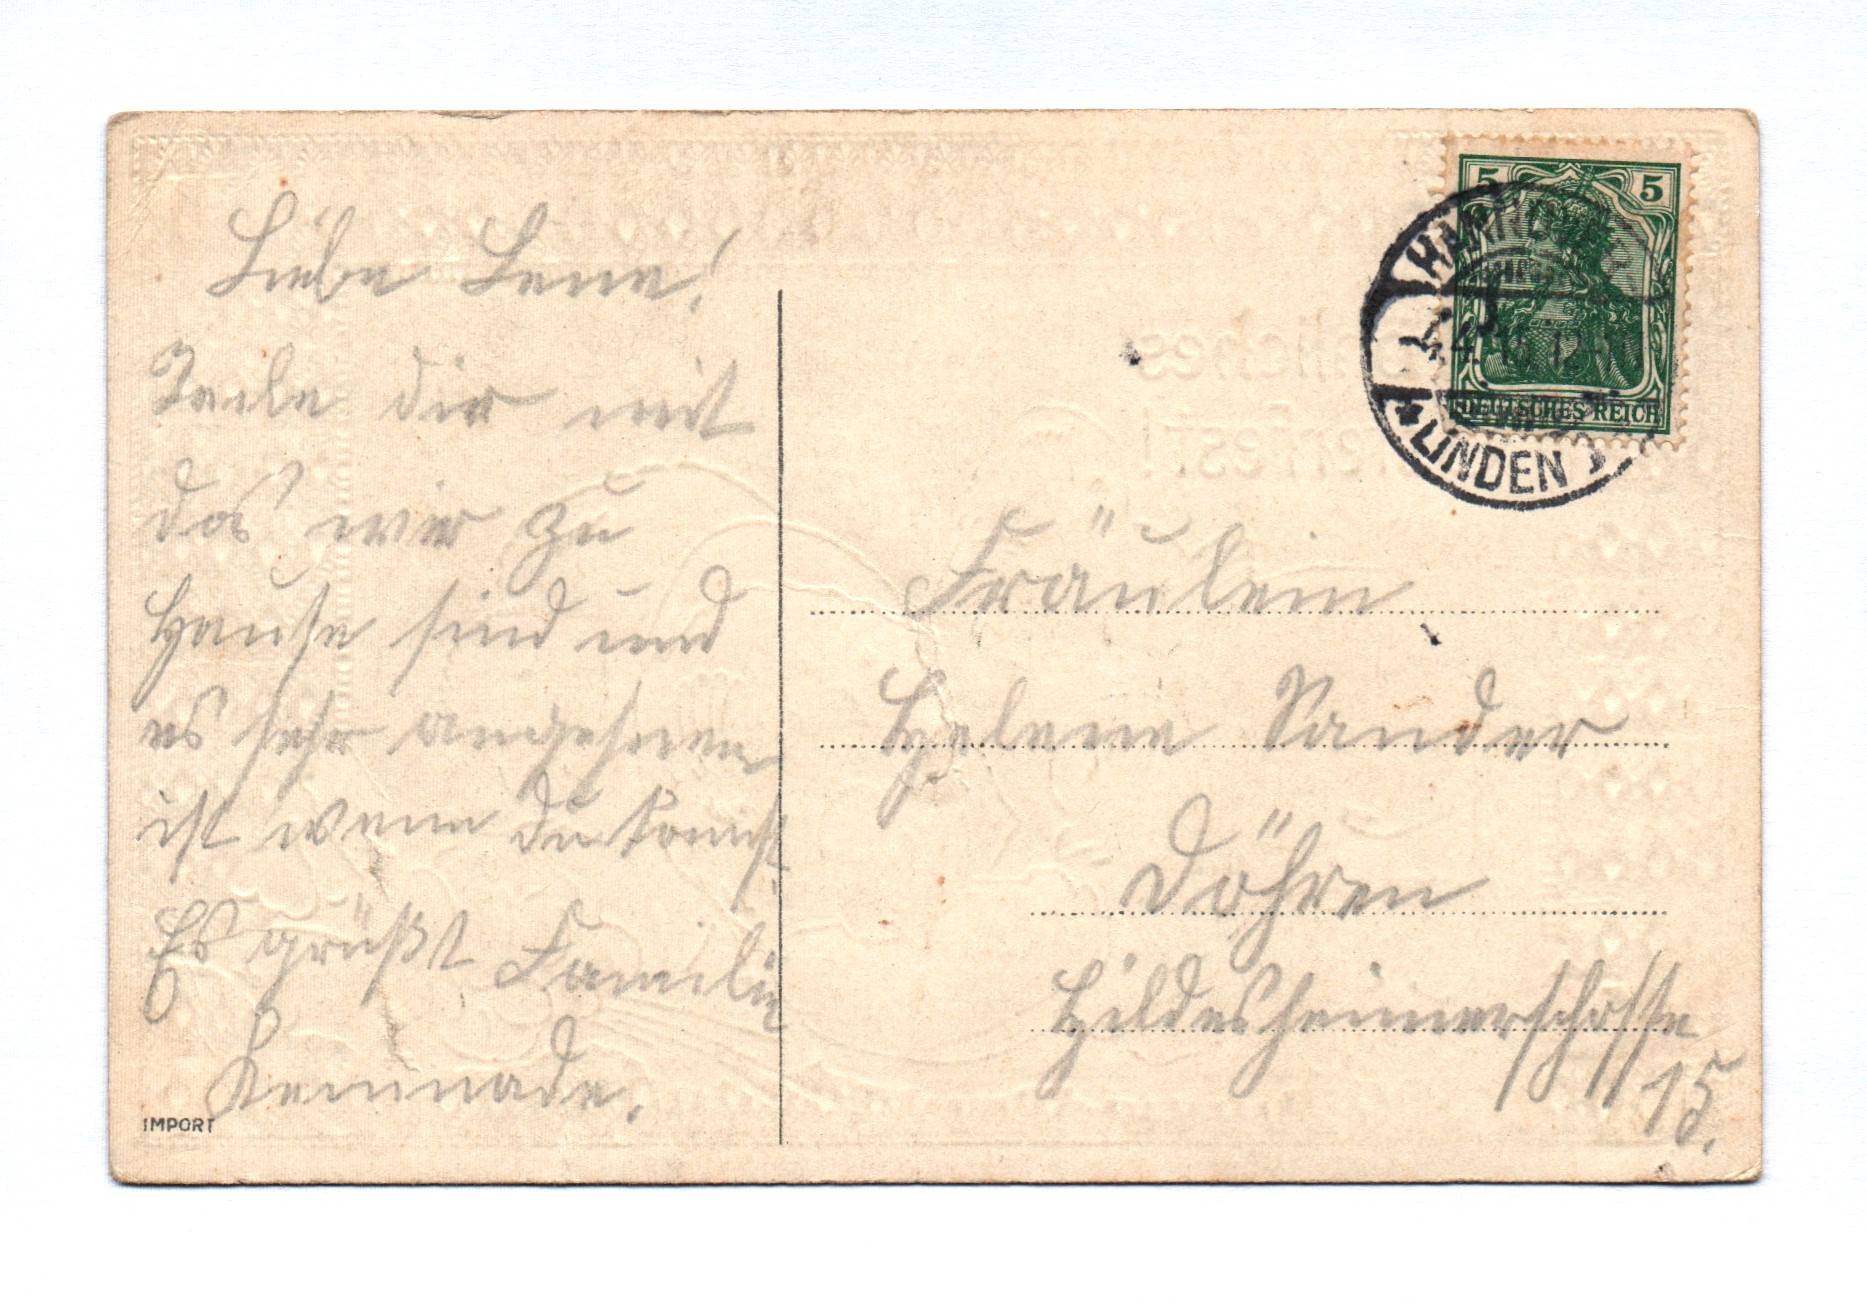 Liebe Lene!
Teile dir mit
das wir zu
Hause sind und
es sehr angenehm
ist wenn du komst.
Es grüßt Familie
Kemnade.
IMPORT
5 5
DEUTSCHES REICH
HANNOVER
LINDEN
Fräulein
Helene Sander
Döhren
Hildesheimerschosse
15.